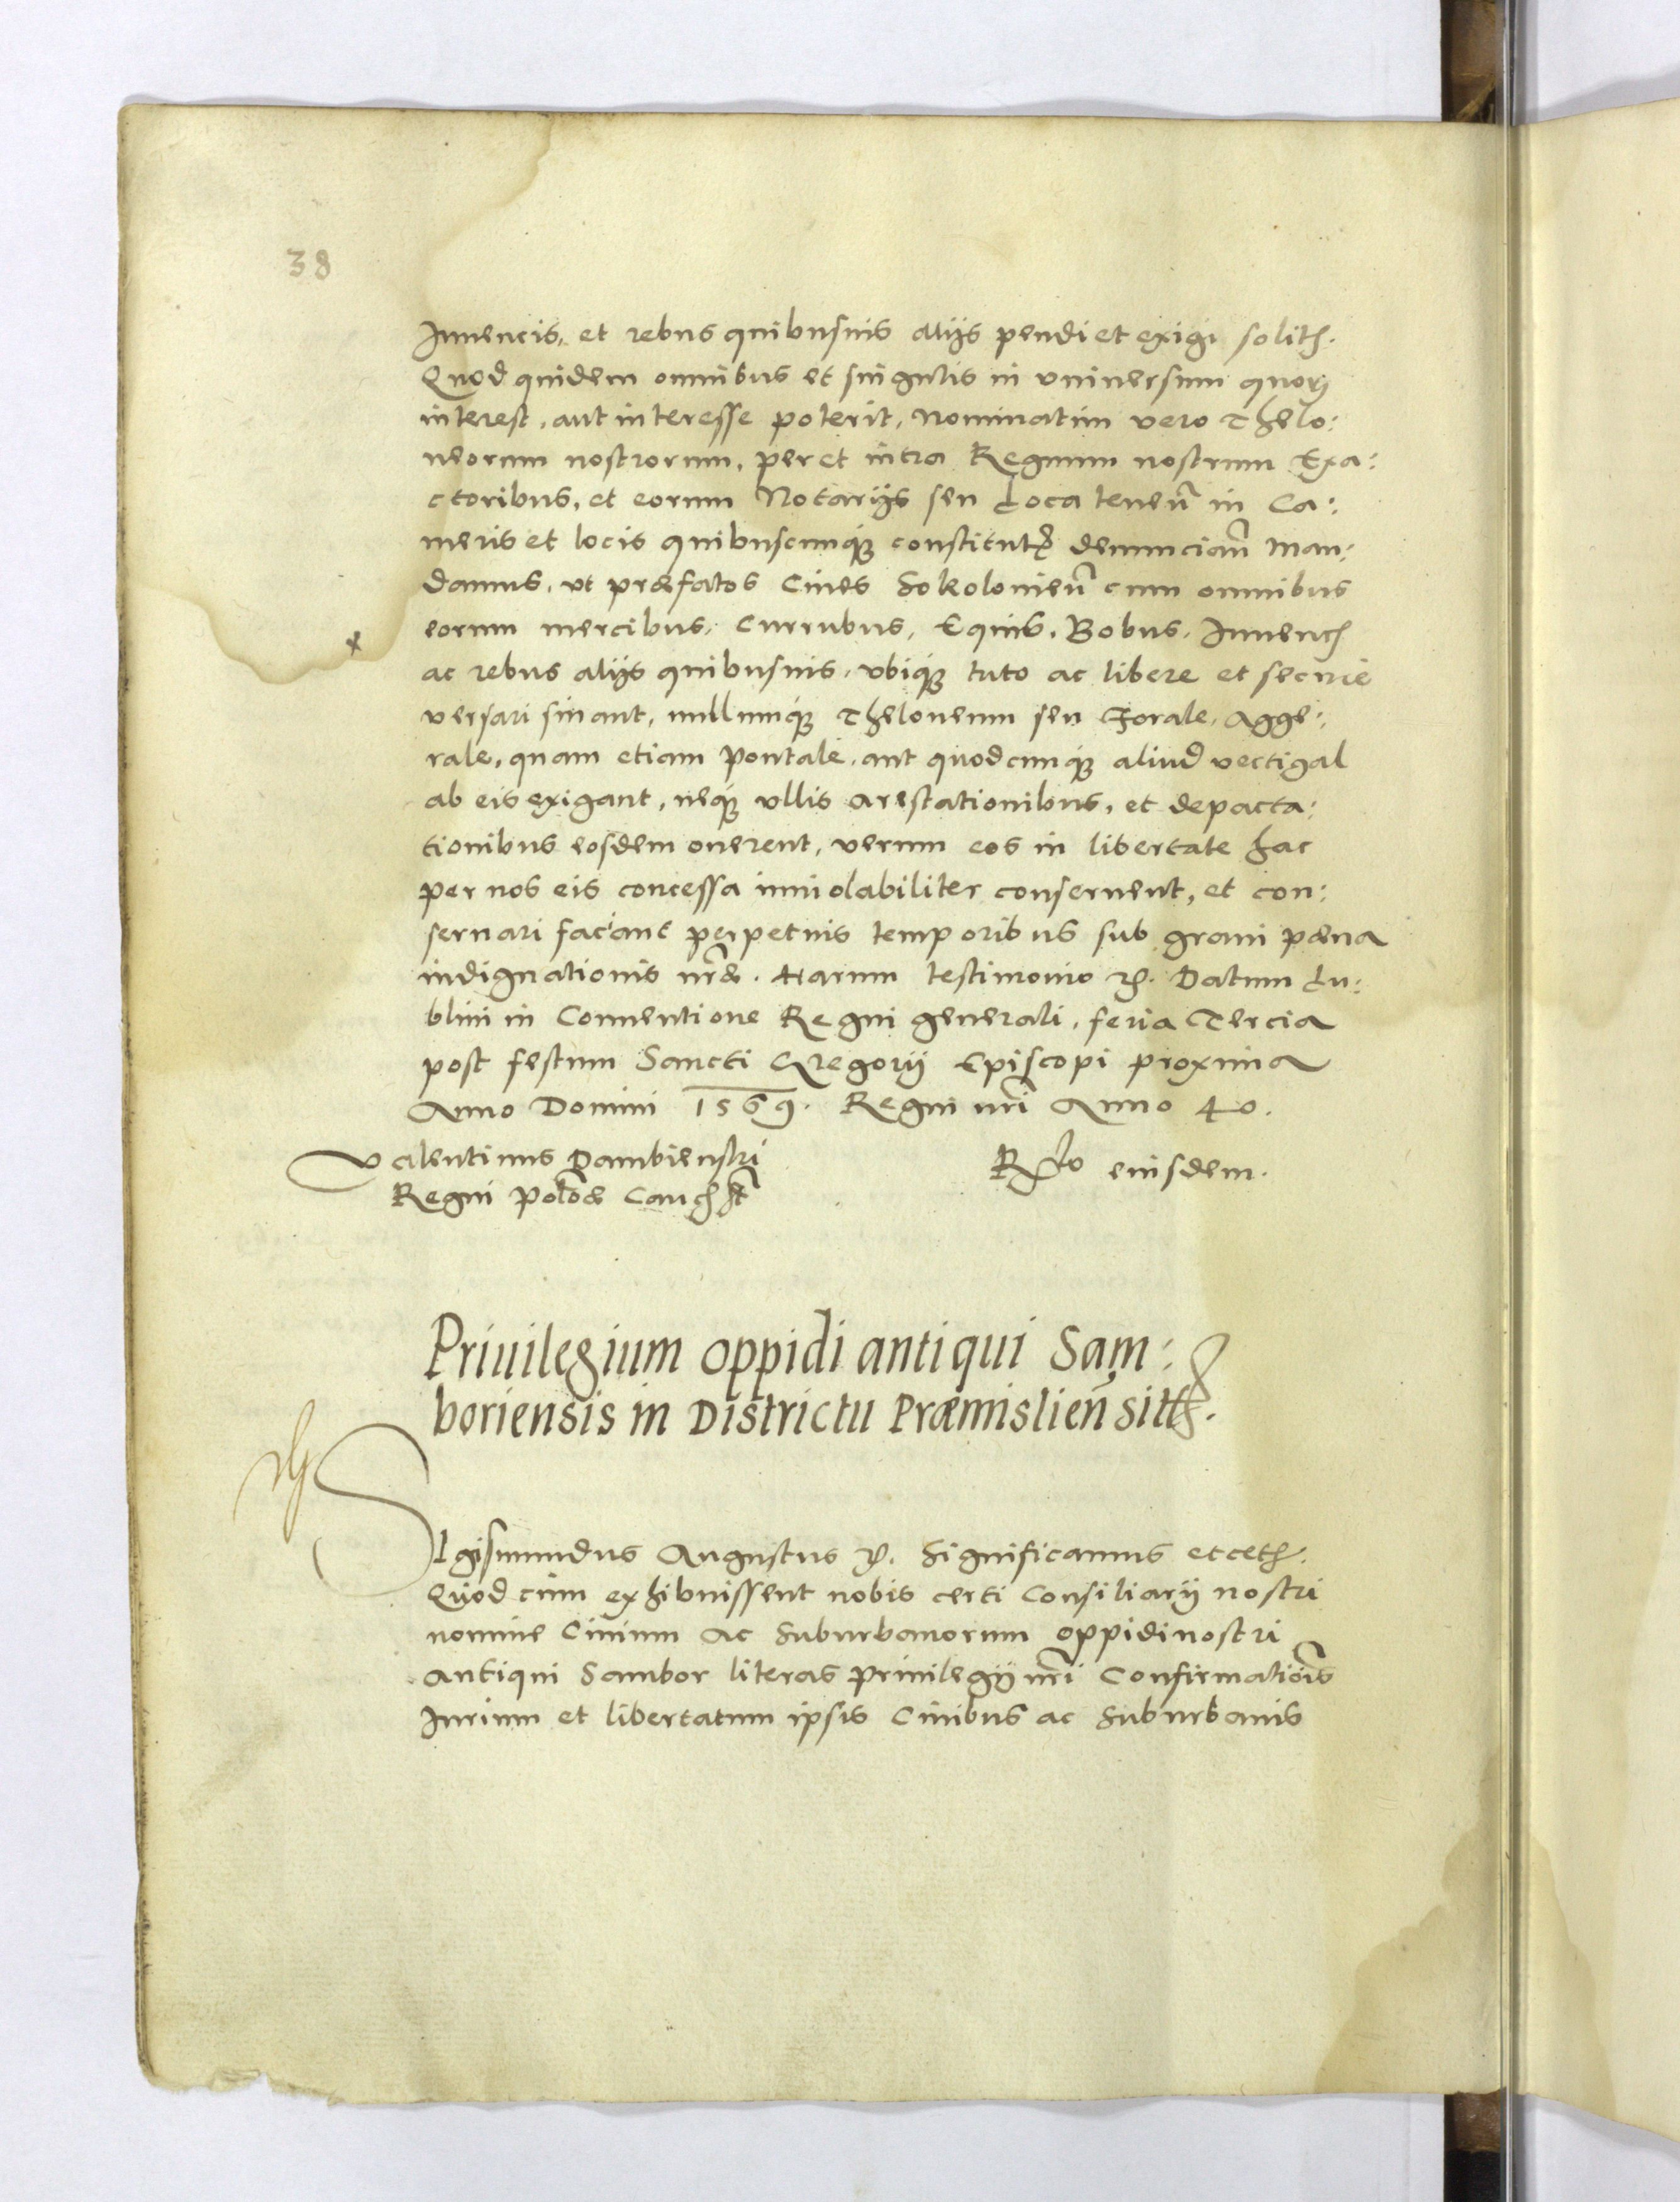 38
Iuuencis, et rebus quibusuis alijs pendi et exigi solitis.
Quod quidem omnibus et singulis in vniuersum quorum
interest, aut interesse poterit, nominatim vero Thelo:
neorum nostrorum, per et intra Regnum nostrum Exa:
ctoribus, et eorum Notarijs seu Loca teneñ in Ca:
meris et locis quibuscunque constitutis denunciañ man:
damus, vt præfatos Ciues Sokolouieñ cum omnibus
eorum mercibus, Curribus, Equis, Bobus, Iuuencis
ac rebus alijs quibusuis, vbique tuto ac libere et secure
versari sinant, nullumque Theloneum seu Forale, Agge:
rale, quam etiam Pontale, aut quodcunque aliud vectigal
ab eis exigant, neque vllis arestationibus, et depacta:
tionibus eosdem onerent, verum eos in libertate hac
per nos eis concessa inuiolabiliter conseruent, et con:
seruari faciant perpetuis temporibus sub graui pæna
indignationis nræ. Harum testimonio etc. Datum Lu:
blini in Conuentione Regni generali, feria Tercia
post festum Sancti Gregorij Episcopi proxima
Anno Domini 1569. Regni nri Anno 40.
Valentinus Dambienski
Regni Poloæ Canc
Rlo eiusdem.
Priuilegium oppidi antiqui Sam:
boriensis in Districtu Præmislieñ siti.
SIgismundus Augustus etc. Significamus etcet.
Quod cum exhibuissent nobis certi Consiliarij nostri
nomine Ciuium ac Suburbanorum oppidi nostri
Antiqui Sambor literas Priuilegij nri Confirmatiois
Iurium et libertatum ipsis Ciuibus ac Suburbanis